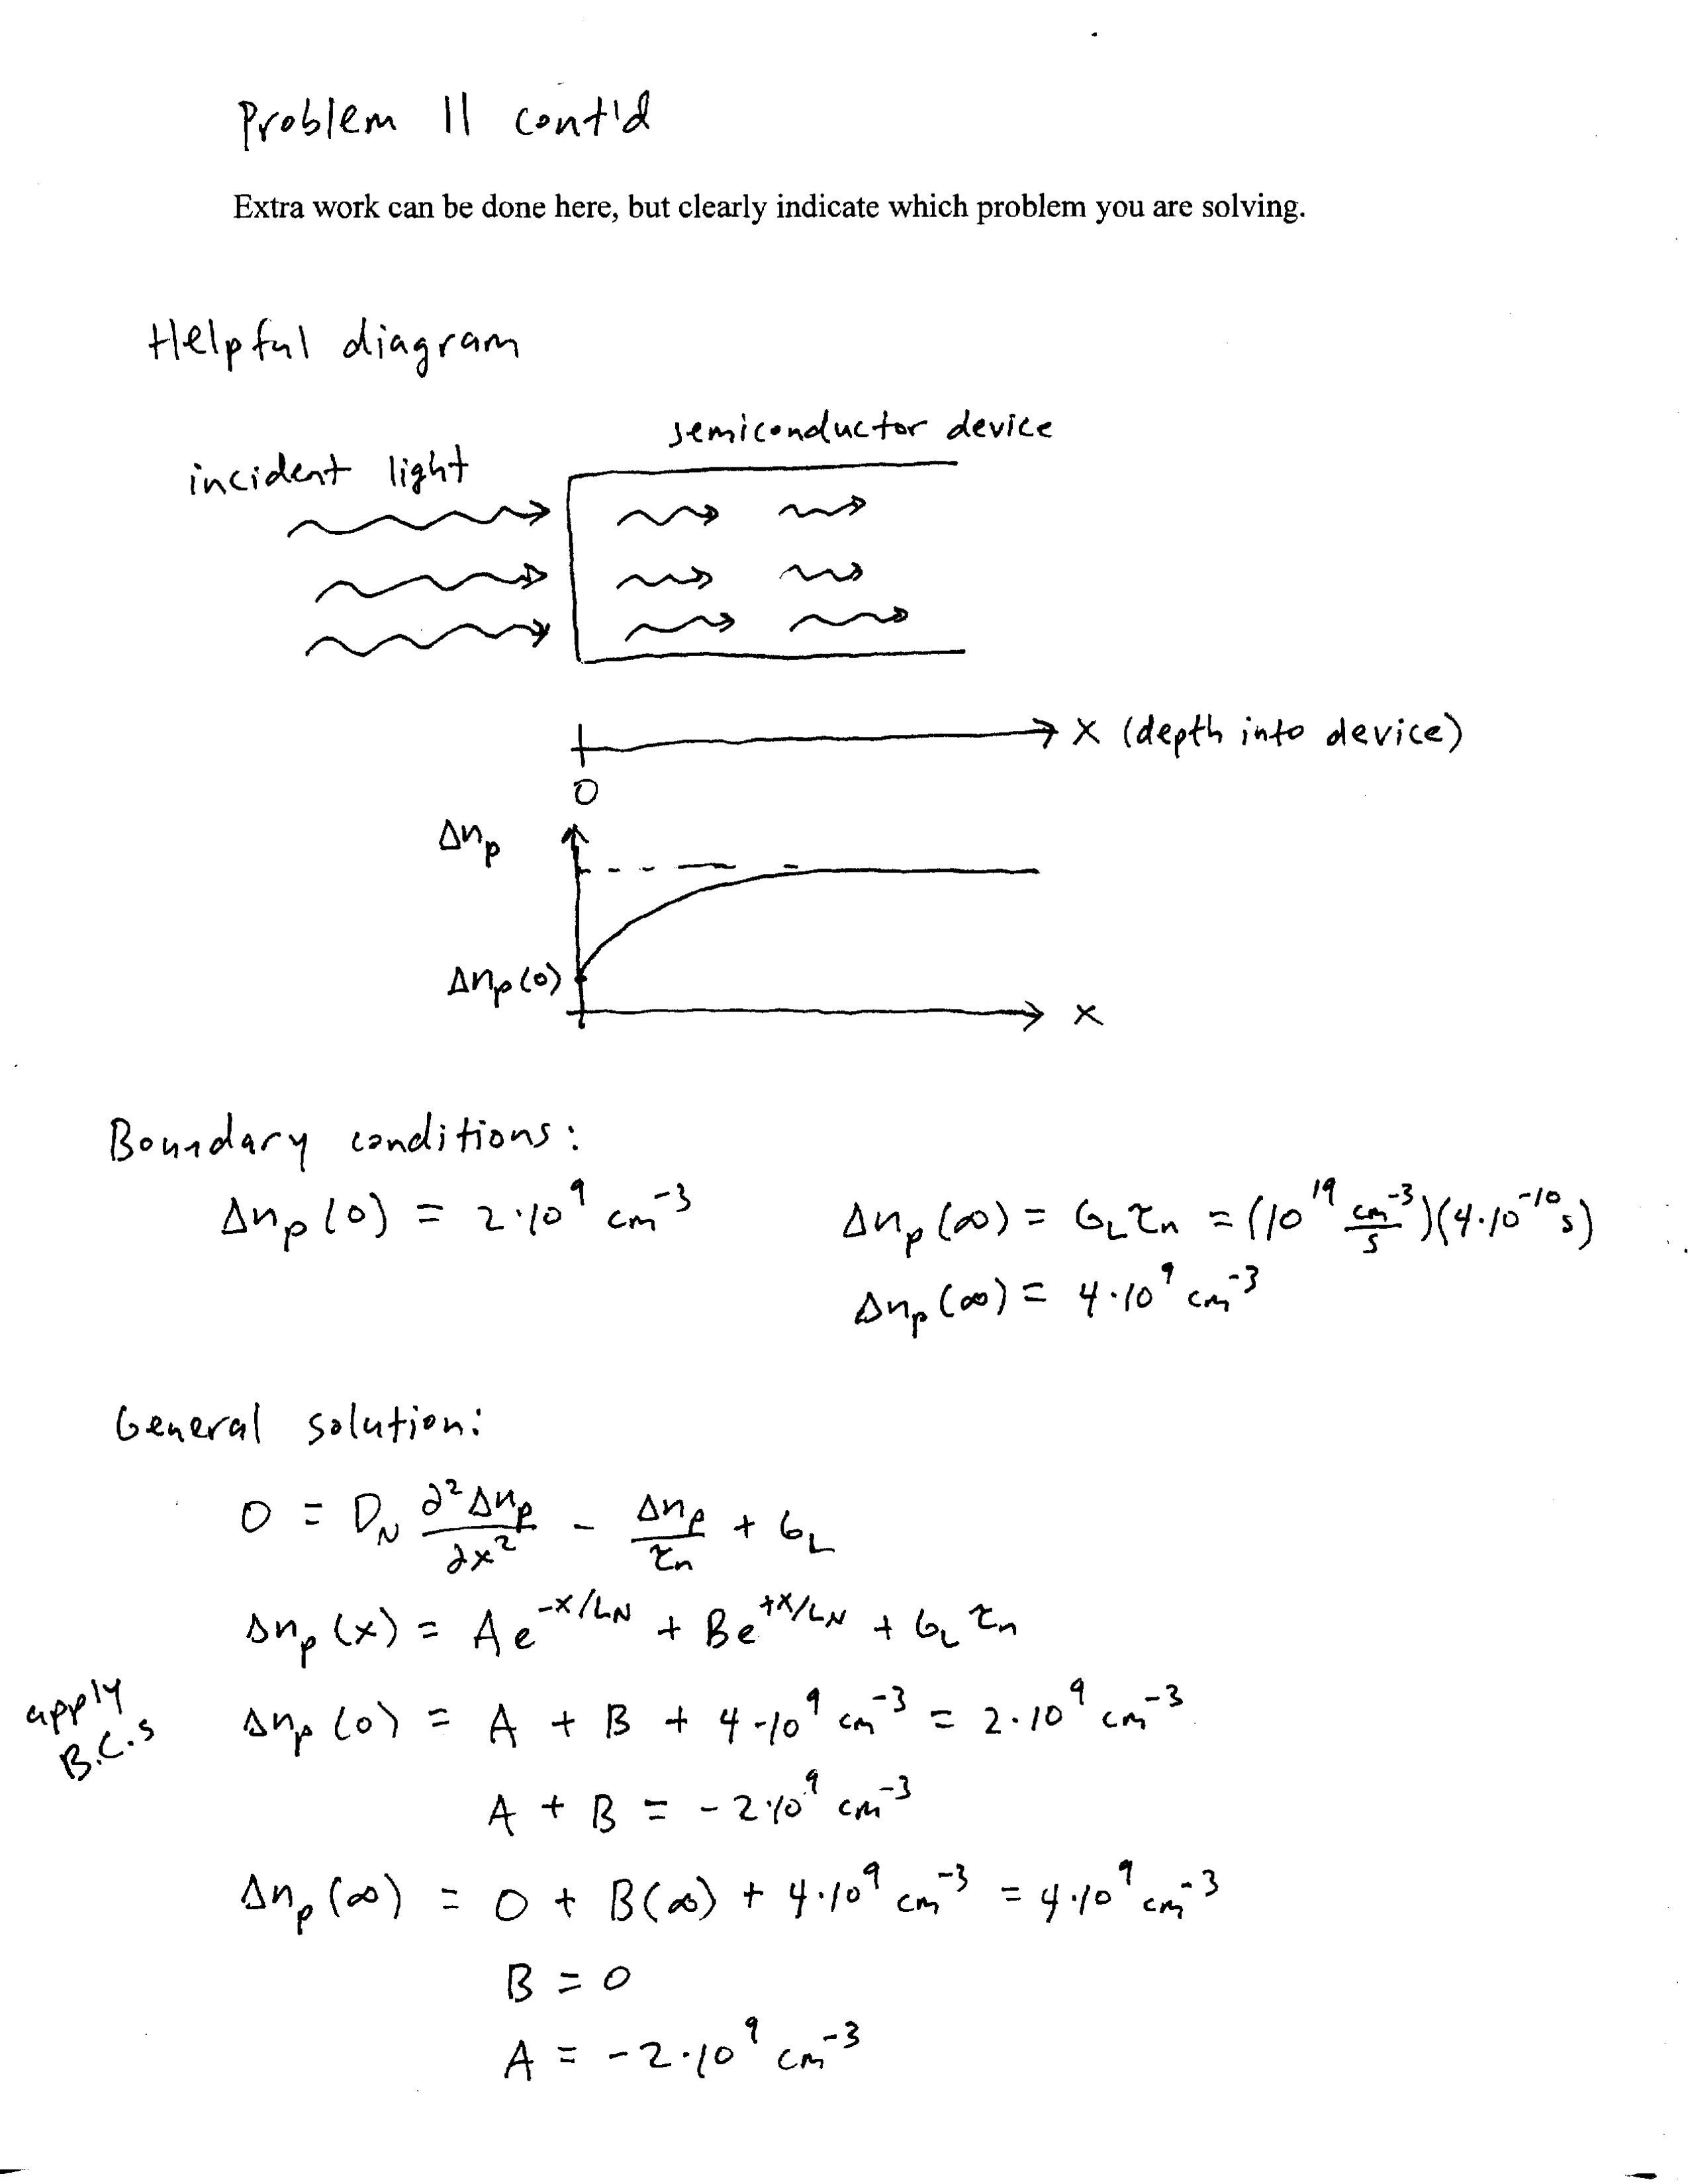 Problem 11 cont'd
Extra work can be done here, but clearly indicate which problem you are solving.
Helpful diagram
semiconductor device
incident light
x (depth into device)
0
Δn_p
Δn_p(0)
x
Boundary conditions:
Δn_p(0) = 2·10^9 cm^-3
Δn_p(∞) = G_L τ_n = (10^19 cm^-3/s)(4·10^-10 s)
Δn_p(∞) = 4·10^9 cm^-3
General solution:
0 = D_N ∂²Δn_p/∂x² - Δn_p/τ_n + G_L
Δn_p(x) = A e^(-x/L_N) + B e^(+x/L_N) + G_L τ_n
apply
B.C.s
Δn_p(0) = A + B + 4·10^9 cm^-3 = 2·10^9 cm^-3
A + B = -2·10^9 cm^-3
Δn_p(∞) = 0 + B(∞) + 4·10^9 cm^-3 = 4·10^9 cm^-3
B = 0
A = -2·10^9 cm^-3